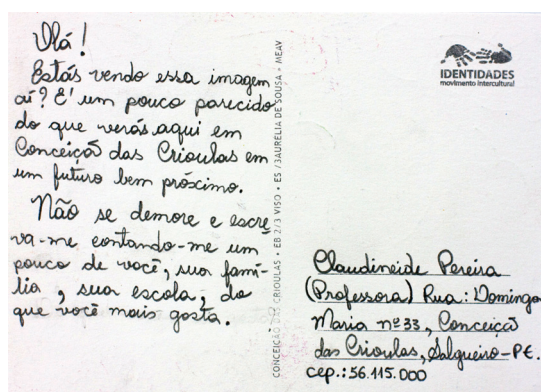 Olá!
Estás vendo essa imagem
aí? E' um pouco parecido
do que verás aqui em
Conceição das Crioulas em
um futuro bem próximo.
Não se demore e escre
va-me contando-me um
pouco de você, sua famí-
lia, sua escola, do
que você mais gosta.
CONCEIÇÃO DAS CRIOULAS • EB 2/3 VISO • ES /3AURELIA DE SOUSA • MEAV
IDENTIDADES
movimento intercultural
Claudineide Pereira
(Professora) Rua: Domingo
Maria nº 33, Conceição
das Crioulas, Salgueiro-PE.
cep.: 56.115.000